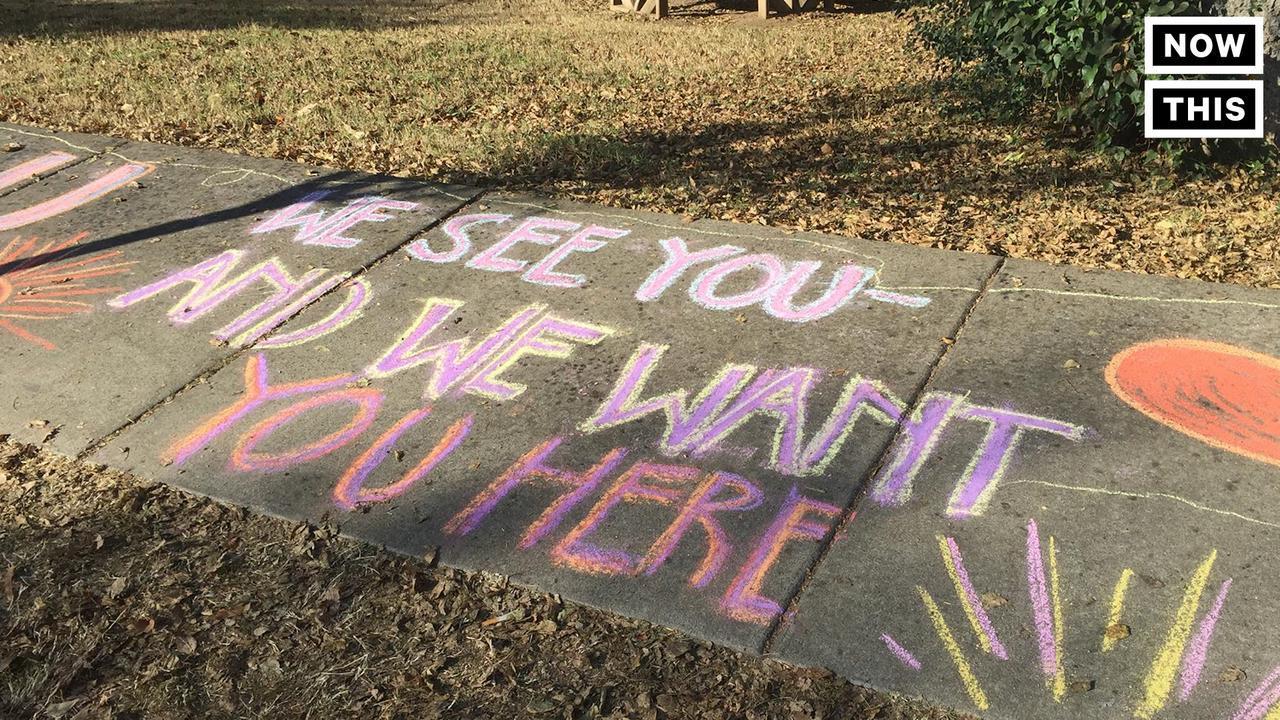 WE SEE YOU-
AND WE WANT
YOU HERE
NOW
THIS